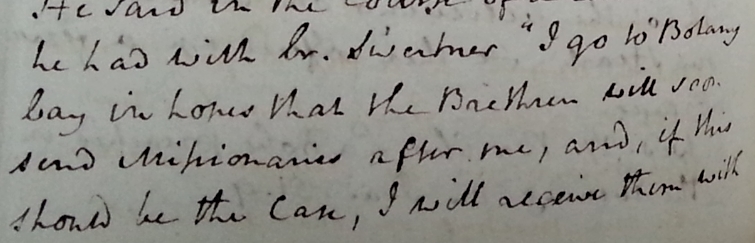 He said in the course of
he had with br. Swertner "I go to Botany
bay in hopes that the Brethren will soon
send Missionaries after me, and, if this
should be the Case, I will receive them with